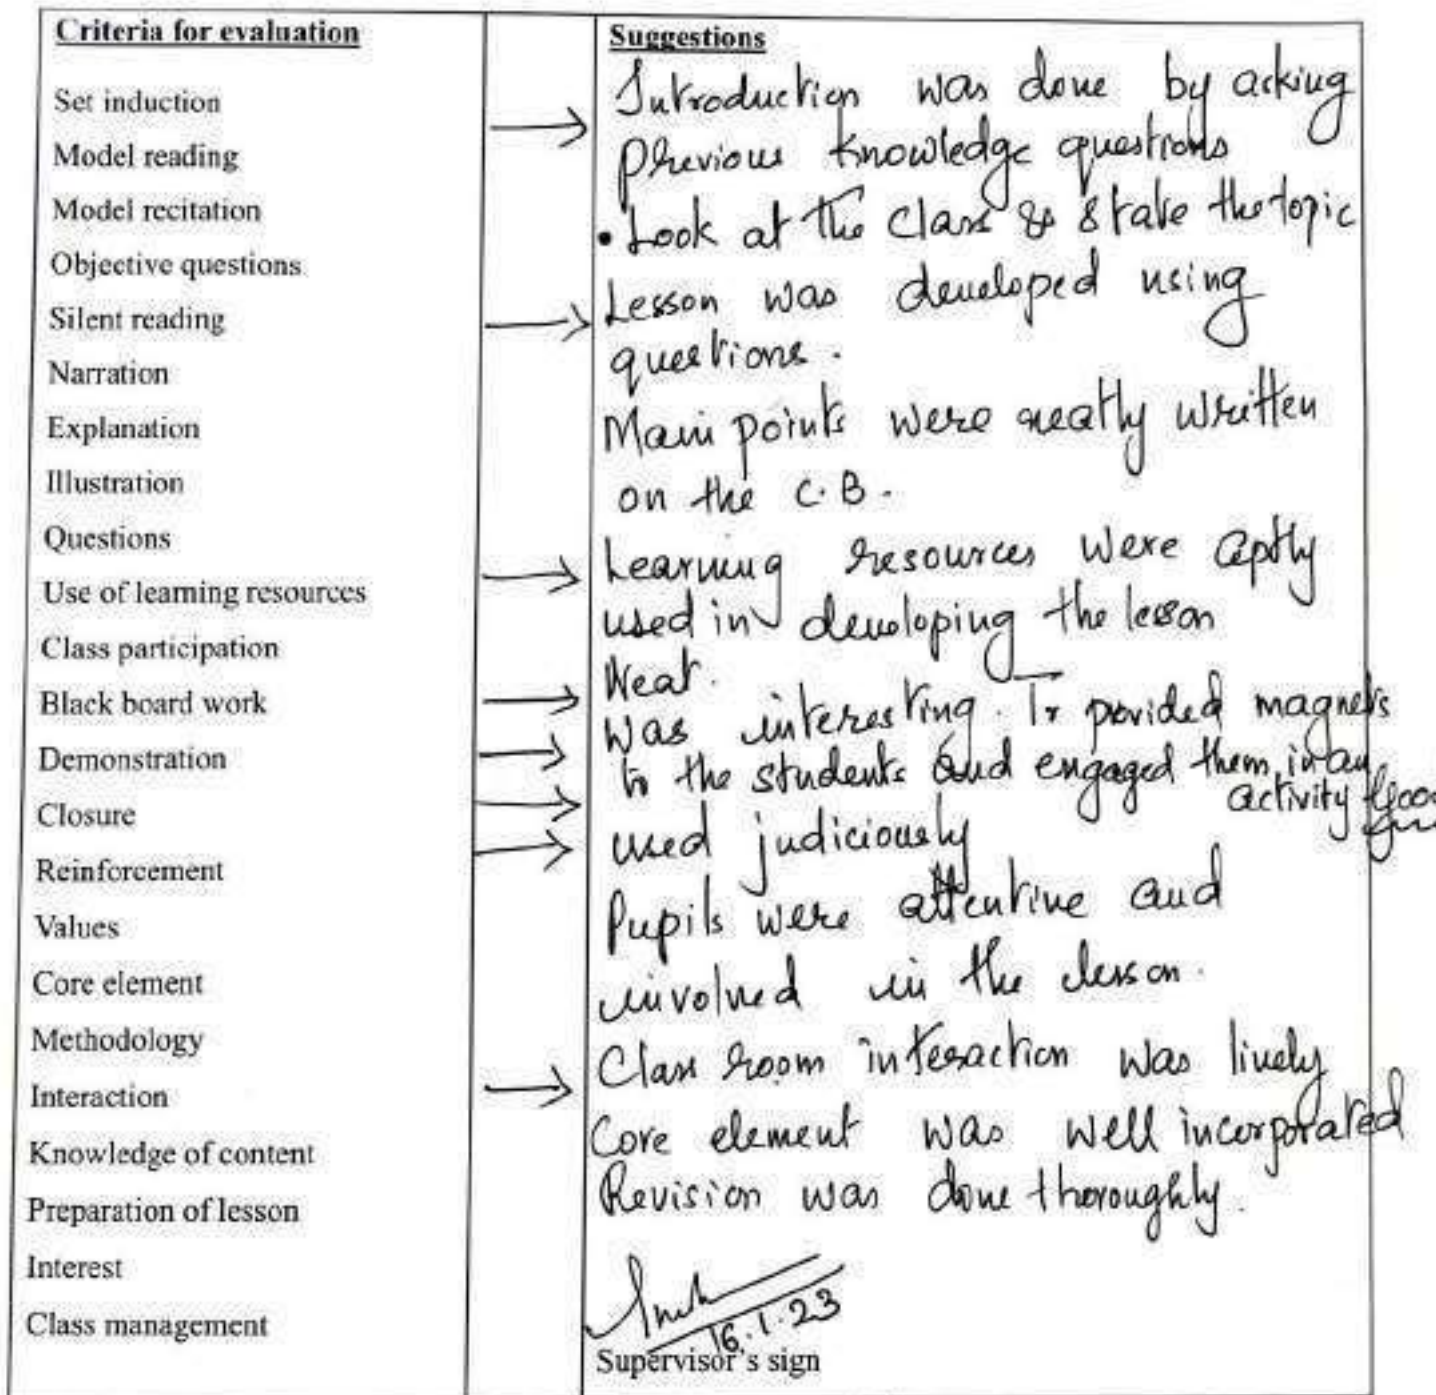 Criteria for evaluation
Set induction
Model reading
Model recitation
Objective questions
Silent reading
Narration
Explanation
Illustration
Questions
Use of learning resources
Class participation
Black board work
Demonstration
Closure
Reinforcement
Values
Core element
Methodology
Interaction
Knowledge of content
Preparation of lesson
Interest
Class management
Suggestions
Introduction was done by acking
Previous knowledge questions
• Look at the class & state the topic
Lesson was developed using
questions.
Main points were neatly written
on the C.B.
Learning resources were aptly
used in developing the lesson
Neat.
Was interesting. Tr provided magnets
to the students and engaged them in an
activity
used judiciously
Pupils were attentive and
involved in the lesson.
Class room interaction was lively
Core element was well incorporated
Revision was done thoroughly.
16.1.23
Supervisor's sign